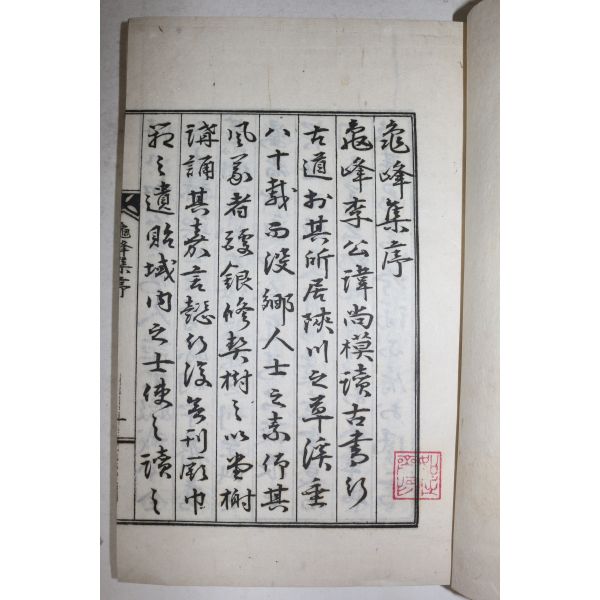 龜峰集序
龜峰李公諱尚模讀古書行
古道於其所居陜川之草溪垂
八十載而沒鄉人士之素仰其
風義者醵銀修契樹之以堂榭
講誦其嘉言懿行後又刊厥巾
箱之遺貽域內之士使之讀之
龜峰集序
一